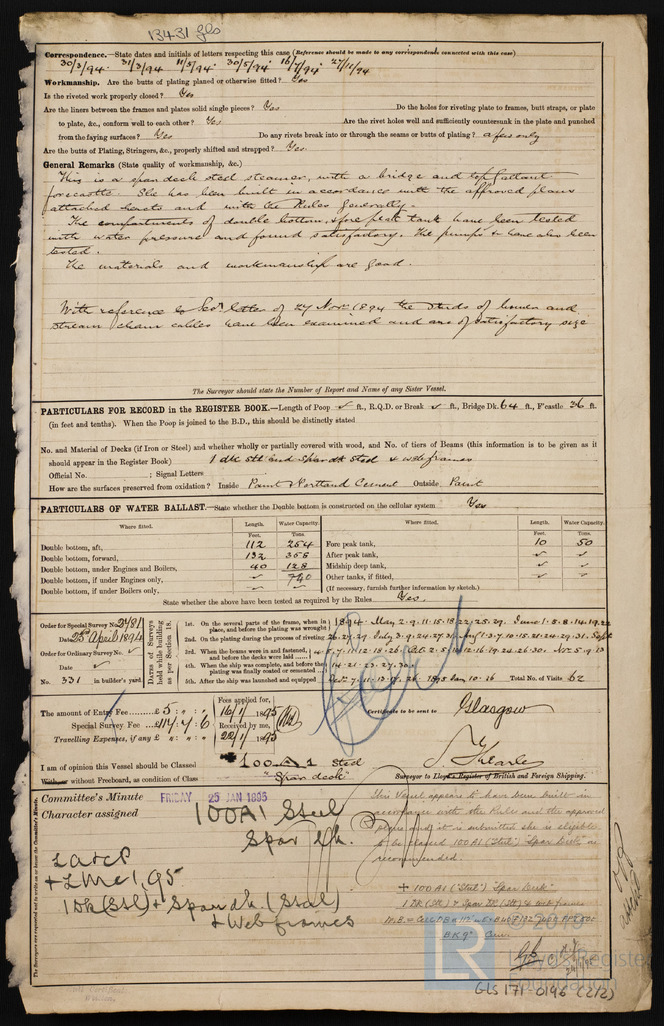 13431 gls
Correspondence.—State dates and initials of letters respecting this case (Reference should be made to any correspondence connected with this case)
30/3/94. 31/3/94 11/5/94. 30/5/94 16/7/94 27/11/94
Workmanship. Are the butts of plating planed or otherwise fitted? Yes
Is the riveted work properly closed? Yes
Are the liners between the frames and plates solid single pieces? Yes Do the holes for riveting plate to frames, butt straps, or plate
to plate, &c., conform well to each other? Yes Are the rivet holes well and sufficiently countersunk in the plate and punched
from the faying surfaces? Yes Do any rivets break into or through the seams or butts of plating? a few only
Are the butts of Plating, Stringers, &c., properly shifted and strapped? Yes
General Remarks (State quality of workmanship, &c.)
This is a spandeck steel steamer, with a bridge and topgallant
forecastle. She has been built in accordance with the approved plans
attached hereto and with the Rules generally.
The compartments of double bottom, & fore peak tank have been tested
with water pressure and found satisfactory. The pumps &c have also been
tested.
The materials and workmanship are good.
With reference to Secy letter of 27 Novr 1894 the studs of bower and
stream chain cables have been examined and are of satisfactory size
The Surveyor should state the Number of Report and Name of any Sister Vessel.
PARTICULARS FOR RECORD in the REGISTER BOOK.—Length of Poop ✓ ft., R.Q.D. or Break ✓ ft., Bridge Dk. 64 ft., F'castle 36 ft.
(in feet and tenths). When the Poop is joined to the B.D., this should be distinctly stated
No. and Material of Decks (if Iron or Steel) and whether wholly or partially covered with wood, and No. of tiers of Beams (this information is to be given as it
should appear in the Register Book) 1 dk stl and Spar dk steel & web frames
Official No. ; Signal Letters
How are the surfaces preserved from oxidation? Inside Paint & Portland Cement Outside Paint
PARTICULARS OF WATER BALLAST.—State whether the Double bottom is constructed on the cellular system Yes
Where fitted. Length. Water Capacity. Where fitted. Length. Water Capacity.
Feet. Tons. Feet. Tons.
Double bottom, aft, 112 254 Fore peak tank, 10 50
Double bottom, forward, 132 358 After peak tank, ✓ ✓
Double bottom, under Engines and Boilers, 40 128 Midship deep tank, ✓ ✓
Double bottom, if under Engines only, 740 Other tanks, if fitted, ✓ ✓
Double bottom, if under Boilers only, (If necessary, furnish further information by sketch.)
State whether the above have been tested as required by the Rules Yes.
Order for Special Survey No. 2481
Date 25 April 1894
Order for Ordinary Survey No. ✓
Date ✓
No. 331 in builder's yard
DATES of Surveys held while building as per Section 18.
1st. On the several parts of the frame, when in place, and before the plating was wrought 1894 May 2.9.11.15.18.22.25.29. June 1.5.8.14.19.22
2nd. On the plating during the process of riveting 26.27.29. July 3.9.24.27.30. Aug 1.3.7.10.15.21.24.29.31. Sept
3rd. When the beams were in and fastened, and before the decks were laid 4.5.7.11.15.18.26. Oct 2.5.12.16.19.24.26.30. Nov 5.9.13
4th. When the ship was complete, and before the plating was finally coated or cemented 14.21.23.27.30
5th. After the ship was launched and equipped Dec 7.11.13.17.26. 1895 Jan 10.16 Total No. of Visits 62
The amount of Entry Fee £5 : " : "
Special Survey Fee £114 : 7 : 6
Travelling Expenses, if any £ " : " : "
Fees applied for,
16/1/1895
Received by me,
22/1/1895
Certificate to be sent to Glasgow
I am of opinion this Vessel should be Classed +100 A 1 Steel
With or without Freeboard, as condition of Class "Spar deck"
Surveyor to Lloyd's Register of British and Foreign Shipping.
Committee's Minute FRIDAY 25 JAN 1895
Character assigned 100A1 Steel
Spar dk.
This Vessel appears to have been built in
accordance with the Rules and the approved
plans and it is submitted she is eligible
to be classed 100 A1 (Steel) "Spar Deck" as
recommended.
+ LMC 1,95
1 Dk (Stl) & Spar dk (Steel)
& Web frames
+ 100 A1 (Steel) "Spar Deck"
1 Dk (Stl) & Spar Dk (Stl) & web frames
The Surveyors are requested not to write on or below the Committee's Minute.
© 2019
LR
Lloyd's Register
Foundation
GLS 171-0196 (2/2)